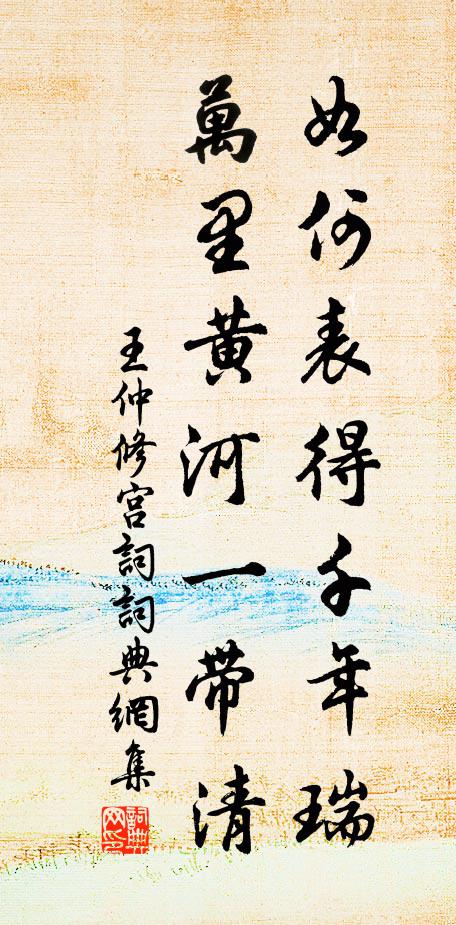 如何表得千年瑞
萬里黃河一带清
王仲修宫詞詞典網集
詞典網印